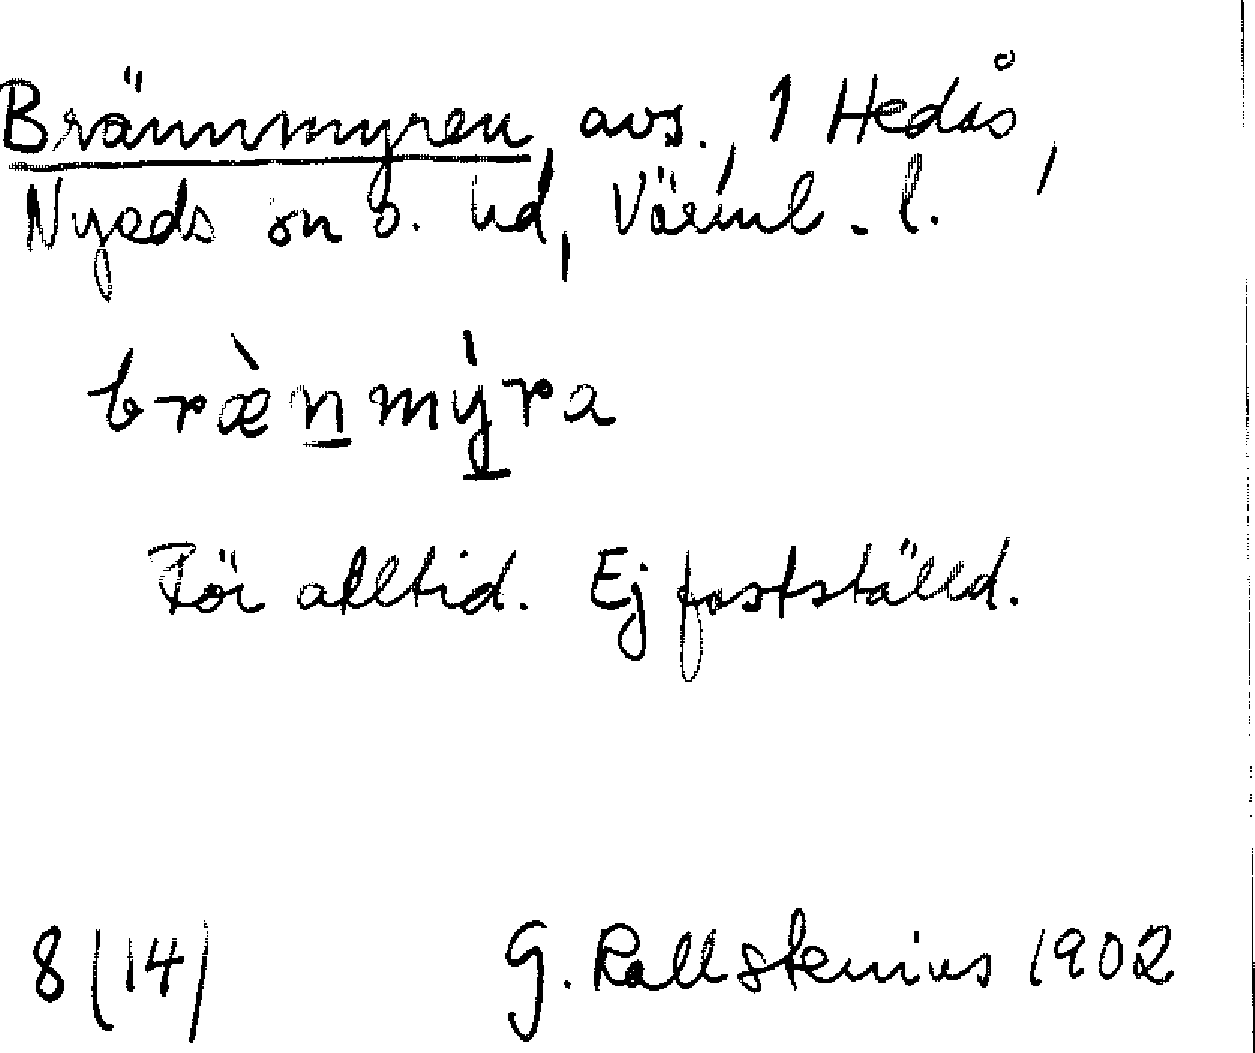 Brännmyren, avs., 1 Hedås,
Nyeds sn o. hd, Värml. l.
bræ̀nmý̱ra
För alltid. Ej fastställd.
8 (14) G. Kallstenius 1902